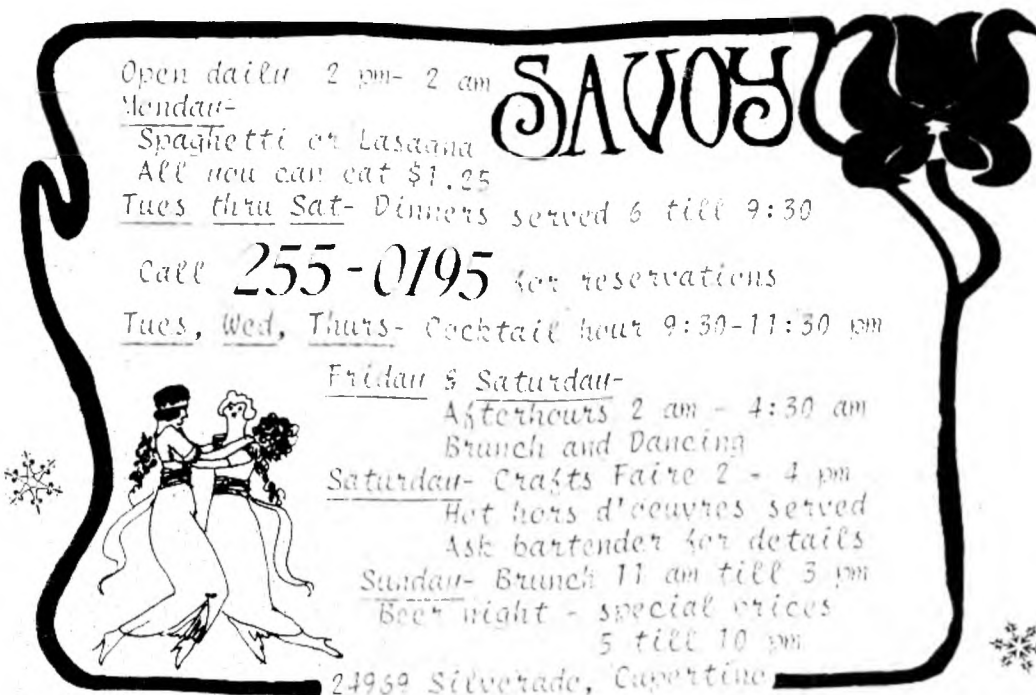 SAVOY
Open daily 2 pm- 2 am
Monday-
Spaghetti or Lasagna
All you can eat $1.25
Tues thru Sat- Dinners served 6 till 9:30
Call 255-0195 for reservations
Tues, Wed, Thurs- Cocktail hour 9:30-11:30 pm
Friday & Saturday-
Afterhours 2 am - 4:30 am
Brunch and Dancing
Saturday- Crafts Faire 2 - 4 pm
Hot hors d'oeuvres served
Ask bartender for details
Sunday- Brunch 11 am till 3 pm
Beer night - special prices
5 till 10 pm
Silverado, Cupertino